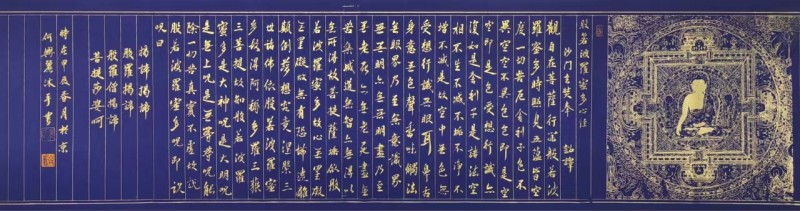 般若波羅蜜多心經
沙門玄奘奉 詔譯
觀自在菩薩行深般若波
羅蜜多時照見五蘊皆空
度一切苦厄舍利子色不
異空空不異色色即是空
空即是色受想行識亦
復如是舍利子是諸法空
相不生不滅不垢不淨不
增不減是故空中无色无
受想行識无眼耳鼻舌
身意无色聲香味觸法
无眼界乃至无意識界
无无明亦无无明盡乃至
无老死亦无老死盡无
苦集滅道无智亦无得以
无所得故菩提薩埵依般
若波羅蜜多故心无罣礙
无罣礙故无有恐怖遠離
顛倒夢想究竟涅槃三
世諸佛依般若波羅蜜
多故得阿耨多羅三藐
三菩提故知般若波羅
蜜多是大神咒是大明咒
是无上咒是无等等咒能
除一切苦真實不虛故說
般若波羅蜜多咒即說
咒曰
揭諦揭諦
般羅揭諦
般羅僧揭諦
菩提莎婆訶
時在甲辰春月於京
何興 沐手書